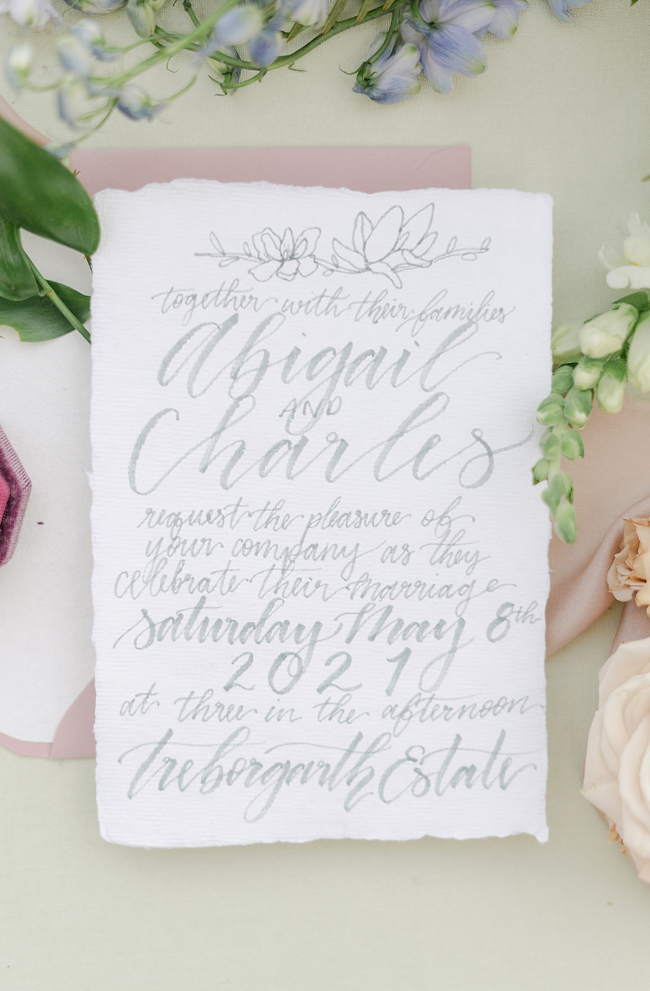 together with their families
Abigail
AND
Charles
request the pleasure of
your company as they
celebrate their marriage
saturday May 8th
2021
at three in the afternoon
treborgarth Estate